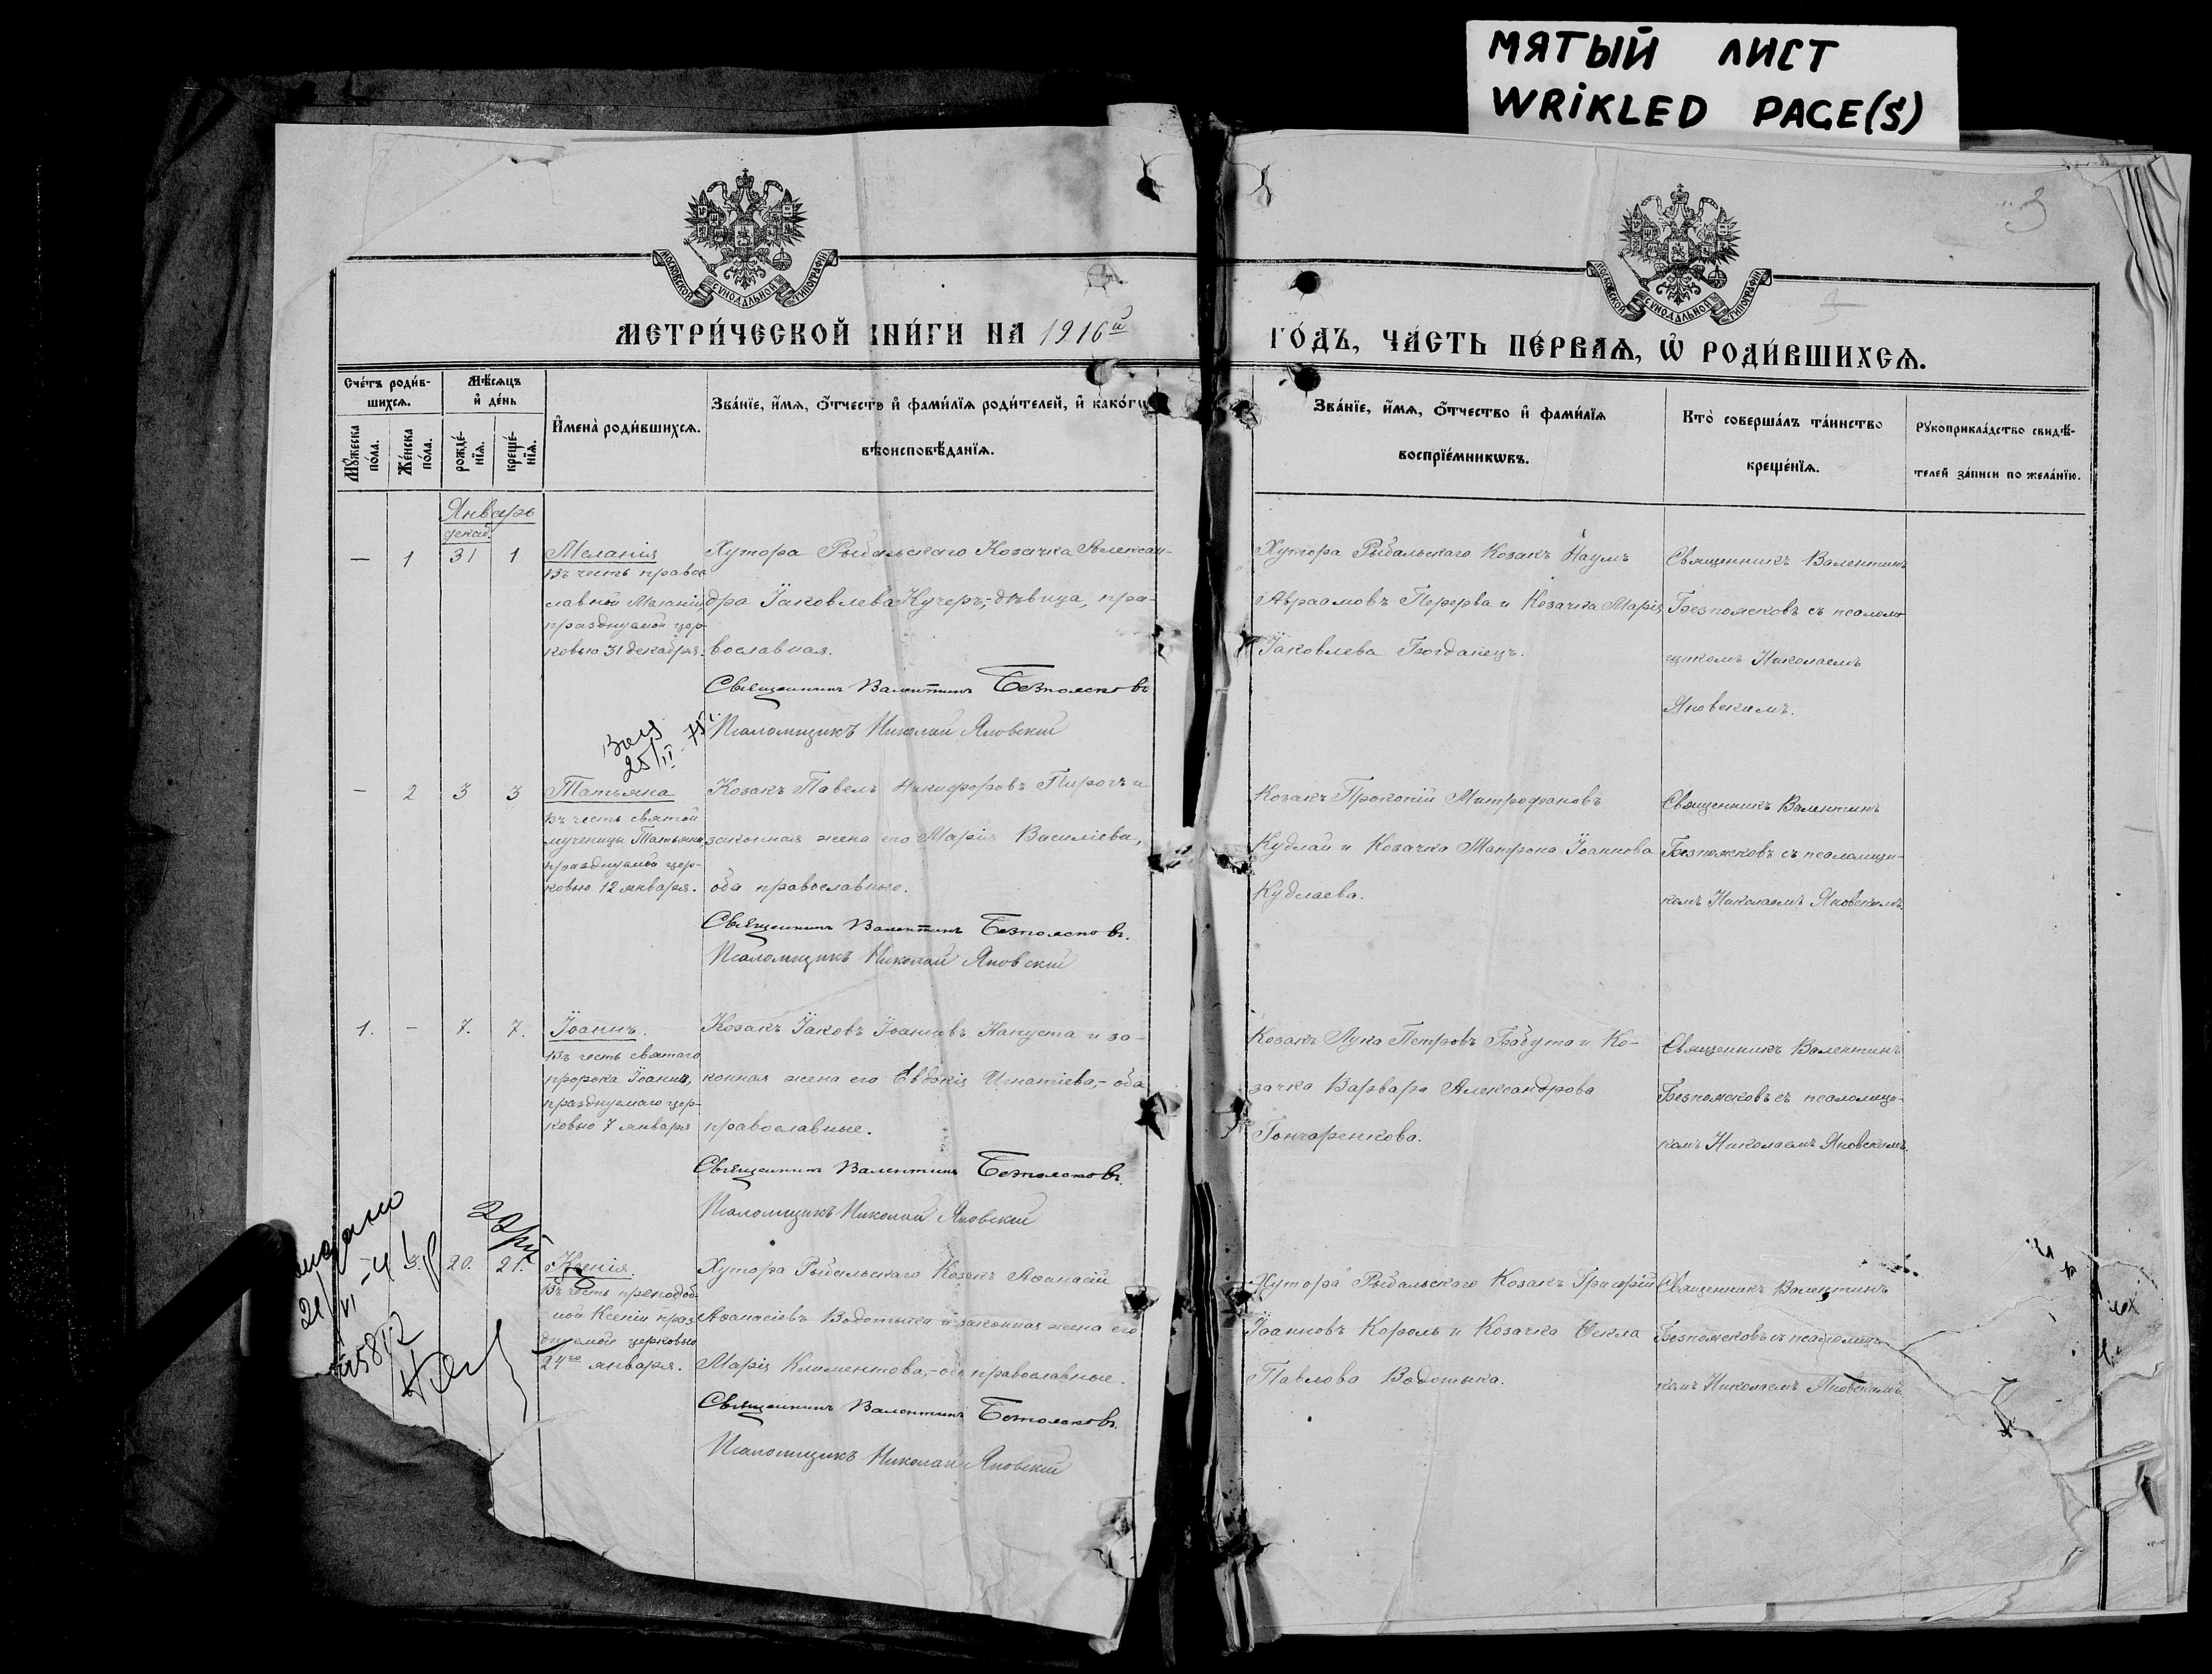 МЯТЫЙ ЛИСТ
WRIKLED PAGE(S)
3
МОСКОВСКОЙ СѴНОДАЛЬНОЙ ТИПОГРАФІИ
МОСКОВСКОЙ СѴНОДАЛЬНОЙ ТИПОГРАФІИ
МЕТРИ́ЧЕСКОЙ КНИ́ГИ НА 1916й
ГО́ДЪ, ЧА́СТЬ ПЕ́РВАѦ, Ѡ҆ РОДИ́ВШИХСѦ.
Сче́тъ роди́в-
шихсѧ.
Мѣ́сѧцъ
и҆ де́нь
И҆мена̀ роди́вшихсѧ.
Зва́нїе, и҆́мѧ, ѻ҆́тчество и҆ фами́лїѧ роди́телей, и҆ како́гѡ
вѣ́роисповѣ́данїѧ.
Мꙋ́жеска
по́ла.
Же́нска
по́ла.
рожде́-
нїѧ.
креще́-
нїѧ.
Зва́нїе, и҆́мѧ, ѻ҆́тчество и҆ фами́лїѧ
воспрїе́мникѡвъ.
Кто̀ соверша́лъ та́инство
креще́нїѧ.
Рꙋкоприкла́дство свидѣ́-
телей за́писи по жела́нїю.
Январь
декаб.
— 1 31 1 Меланія
въ честь правос
славной Меланіи
празднуемой цер-
ковью 31 декабря.
Хутора Рыбальскаго Козачка Алексан-
дра Іаковлева Кучеръ, - дѣвица, пра-
вославная.
Священникъ Валентинъ Безпоясковъ
Псаломщикъ Николай Яновскій
Хутора Рыбальскаго Козакъ Наумъ
Авраамовъ Перерва и Козачка Марія
Іаковлева Богданецъ.
Священникъ Валентинъ
Безпоясковъ съ псалом-
щикомъ Николаемъ
Яновскимъ.
25/II 75
— 2 3 3 Татьяна
въ честь святой
мученицы Татьяны,
празднуемой цер-
ковью 12 января.
Козакъ Павелъ Никифоровъ Пирогъ и
законная жена его Марія Василіева,
оба православные.
Священникъ Валентинъ Безпоясковъ.
Псаломщикъ Николай Яновскій
Козакъ Прокопій Митрофановъ
Кудлай и Козачка Матрона Іоаннова
Кудлаева.
Священникъ Валентинъ
Безпоясковъ съ псаломщи-
комъ Николаемъ Яновскимъ.
1. — 7. 7. Іоаннъ.
въ честь святаго
пророка Іоанна,
празднуемаго цер-
ковью 7 января
Козакъ Іаковъ Іоанновъ Капуста и за-
конная жена его Евдокія Игнатіева, - оба
православные.
Священникъ Валентинъ Безпоясковъ.
Псаломщикъ Николай Яновскій
Козакъ Лука Петровъ Бабута и Ко-
зачка Варвара Александрова
Гончаренкова.
Священникъ Валентинъ
Безпоясковъ съ псаломщи-
комъ Николаемъ Яновскимъ.
— 3. 20. 21. Ксенія.
въ честь преподоб-
ной Ксеніи праз-
днуемой церковью
24го января.
Хутора Рыбальскаго Козакъ Аѳанасій
Аѳанасіевъ Водотыка и законная жена его
Марія Климентова, - оба православные.
Священникъ Валентинъ Безпоясковъ.
Псаломщикъ Николай Яновскій
Хутора Рыбальскаго Козакъ Григорій
Іоанновъ Король и Козачка Ѳекла
Павлова Водотыка.
Священникъ Валентинъ
Безпоясковъ съ псаломщи-
комъ Николаемъ Яновскимъ.